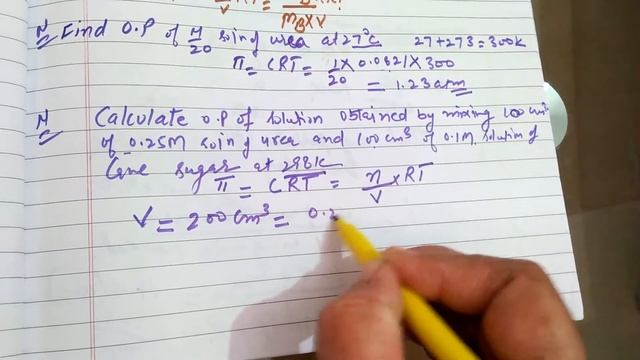 N Find O.P of M/20 soing urea at 27°C 27+273=300K
π = CRT = 1/20 X 0.0821 X 300
= 1.23 atm
N Calculate O.P of solution obtained by mixing 100 cm³
of 0.25M soing urea and 100 cm³ of 0.1M solution of
Cane sugar at 298K
π = CRT = n/V x RT
V = 200 cm³ = 0.2